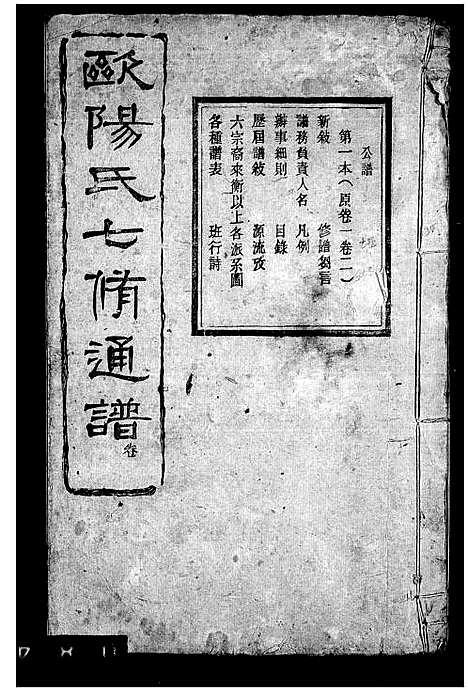 公譜
第一本（原卷一卷二）
新敘 修譜芻言
譜務負責人名 凡例
辦事細則 目錄
歷屆譜敘 源流攷
大宗裔來衡以上各派系圖
各種譜表 班行詩
歐陽氏七脩通譜
卷